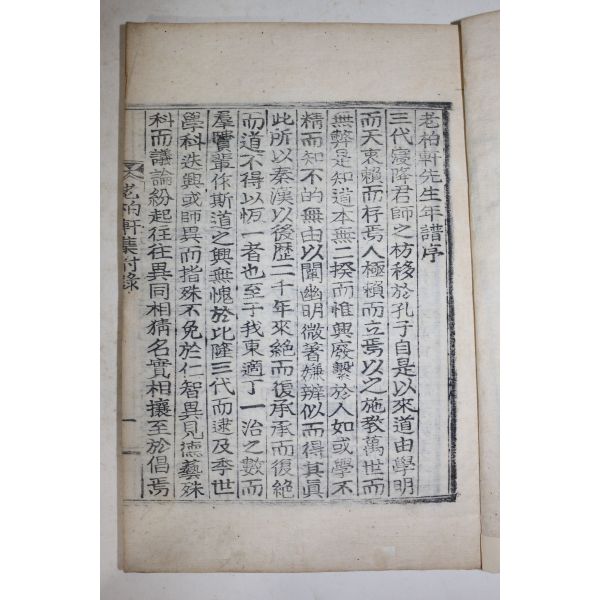 老柏軒先生年譜序
三代寖降君師之枋移於孔子自是以來道由學明
而天衷賴而存焉人極賴而立焉以之施教萬世而
無弊是知道本無二揆而惟興廢繫於人如或學不
精而知不的無由以闡幽明微著嫌辨似而得其眞
此所以秦漢以後歷二千年來絶而復承承而復絶
而道不得以恆一者也至于我東適丁一治之數而
羣賢輩作斯道之興無愧於比隆三代而逮及季世
學科迭興或師異而指殊不免於仁智異見德藝殊
科而議論紛起往往異同相猜名實相攘至於倡焉
老柏軒集附錄
一